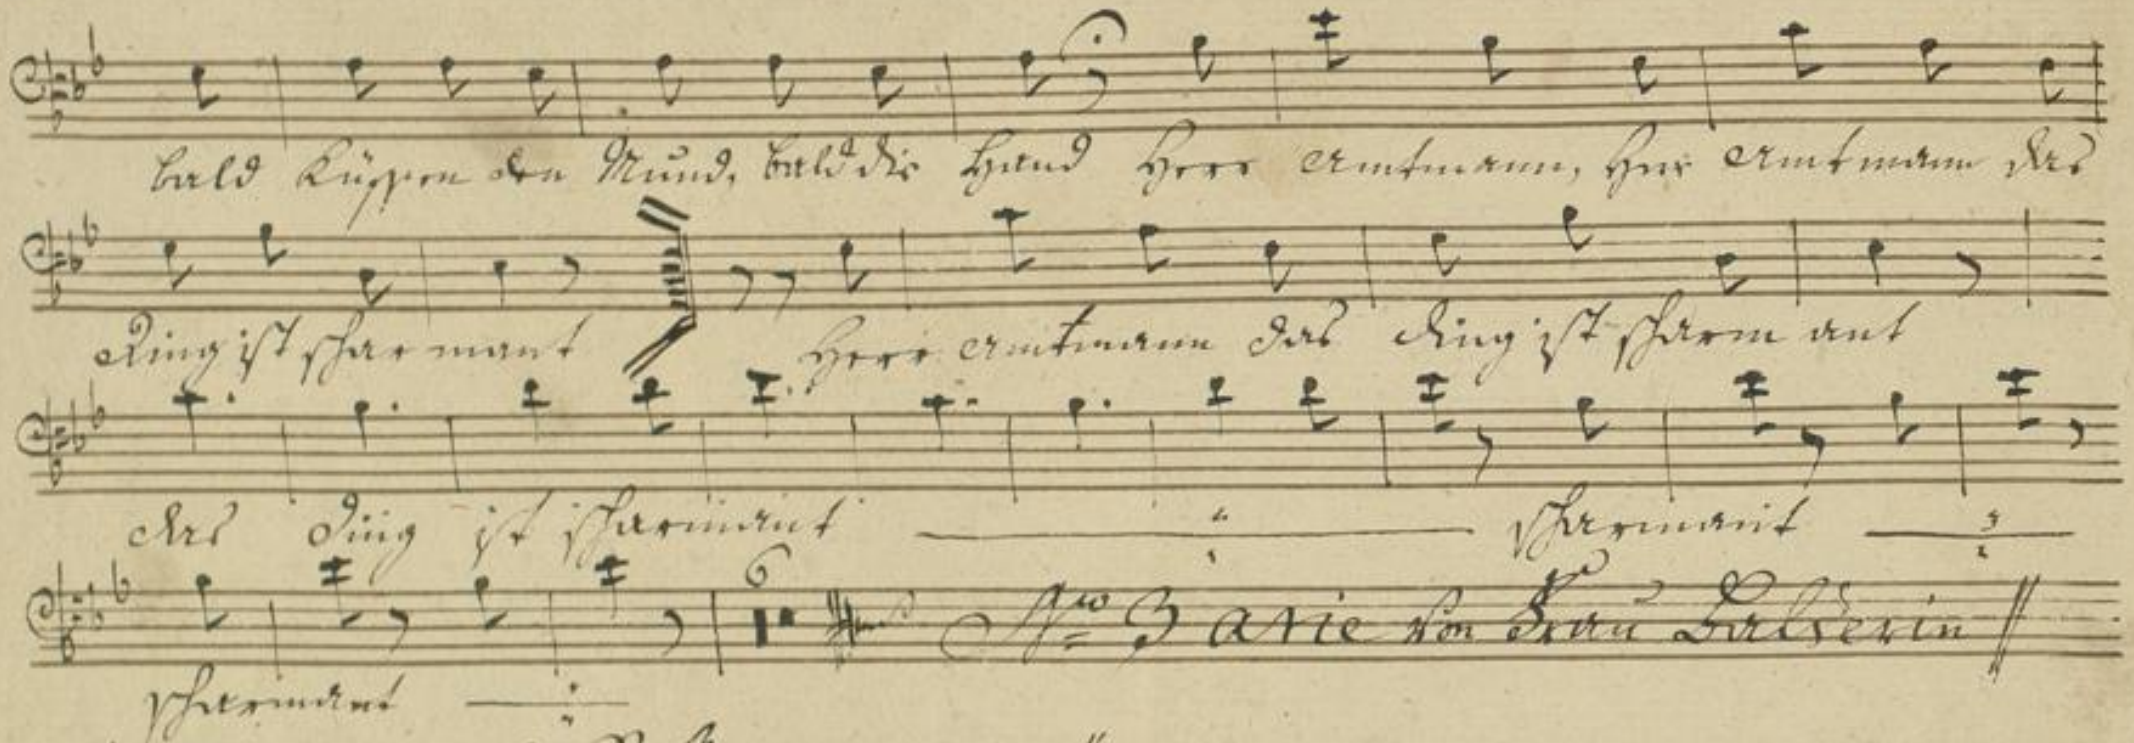 bald Küssen den Mund, bald die Hand Herr Amtmann, Herr Amtmann das
Ding ist scharmant Herr Amtmann das Ding ist scharmant
das Ding ist scharmant scharmant
6 Nro 3 Arie von Frau Balserin
scharmant